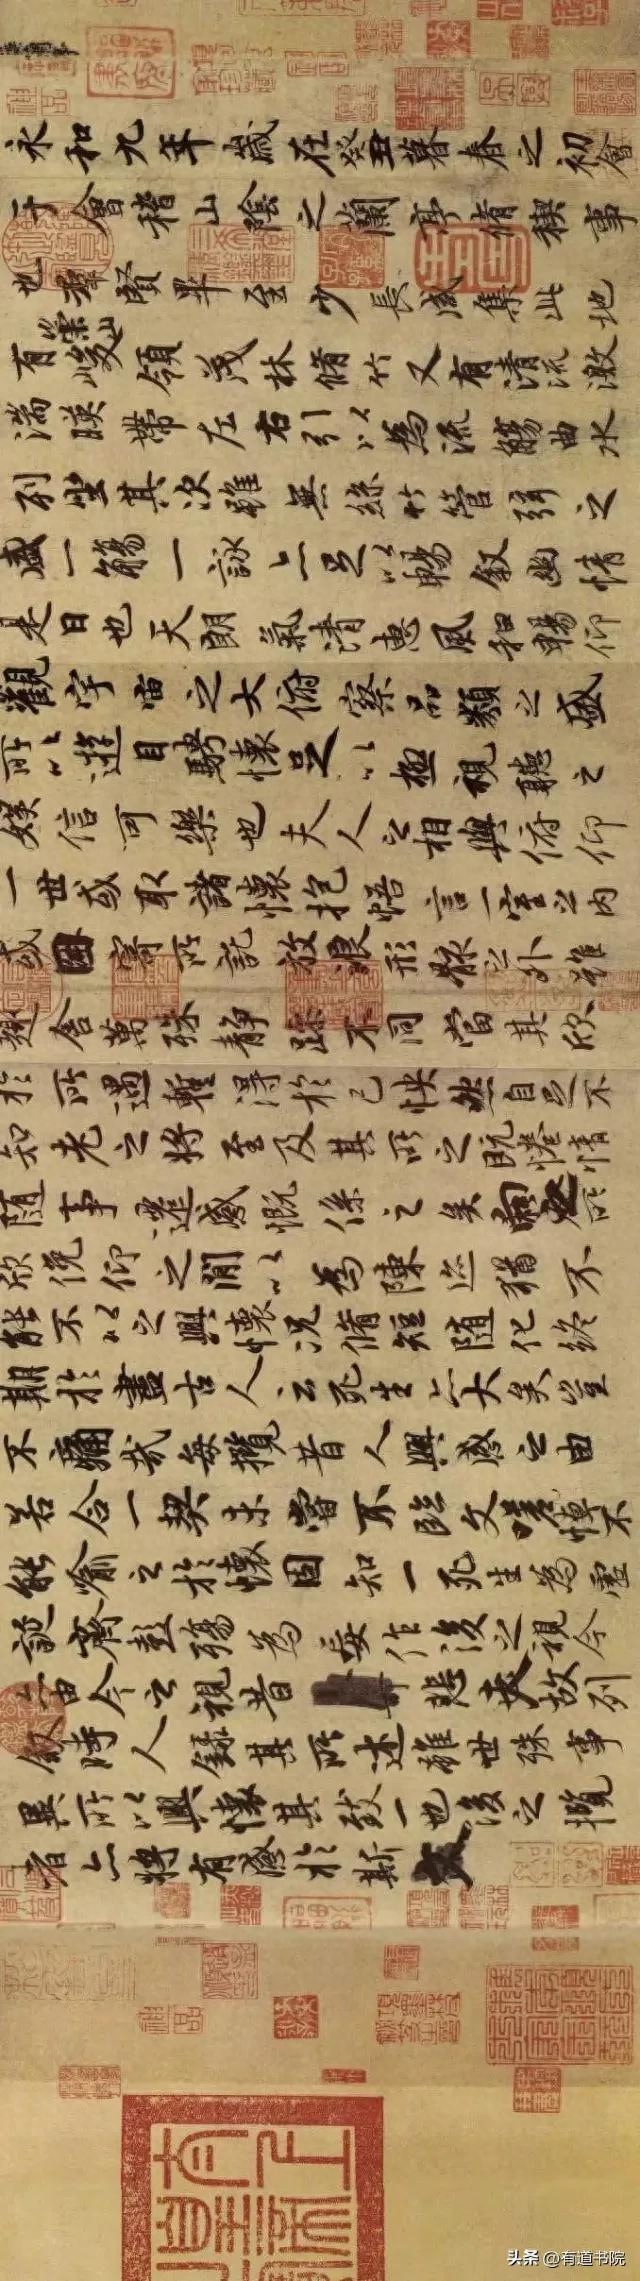 永和九年歲在癸丑暮春之初會
于會稽山陰之蘭亭脩稧事
也群賢畢至少長咸集此地
有崇山峻領茂林脩竹又有清流激
湍暎帶左右引以為流觴曲水
列坐其次雖無絲竹管弦之
盛一觴一詠亦足以暢敘幽情
是日也天朗氣清惠風和暢仰
觀宇宙之大俯察品類之盛
所以遊目騁懷足以極視聽之
娛信可樂也夫人之相與俯仰
一世或取諸懷抱悟言一室之內
或因寄所託放浪形骸之外雖
趣舍萬殊靜躁不同當其欣
於所遇暫得於己怏然自足不
知老之將至及其所之既惓情
隨事遷感慨係之矣向之所
欣俛仰之間以為陳迹猶不
能不以之興懷況脩短隨化終
期於盡古人云死生亦大矣豈
不痛哉每攬昔人興感之由
若合一契未嘗不臨文嗟悼不
能喻之於懷固知一死生為虛
誕齊彭殤為妄作後之視今
亦由今之視昔悲夫故列
敘時人錄其所述雖世殊事
異所以興懷其致一也後之攬
者亦將有感於斯文
头条 @有道书院